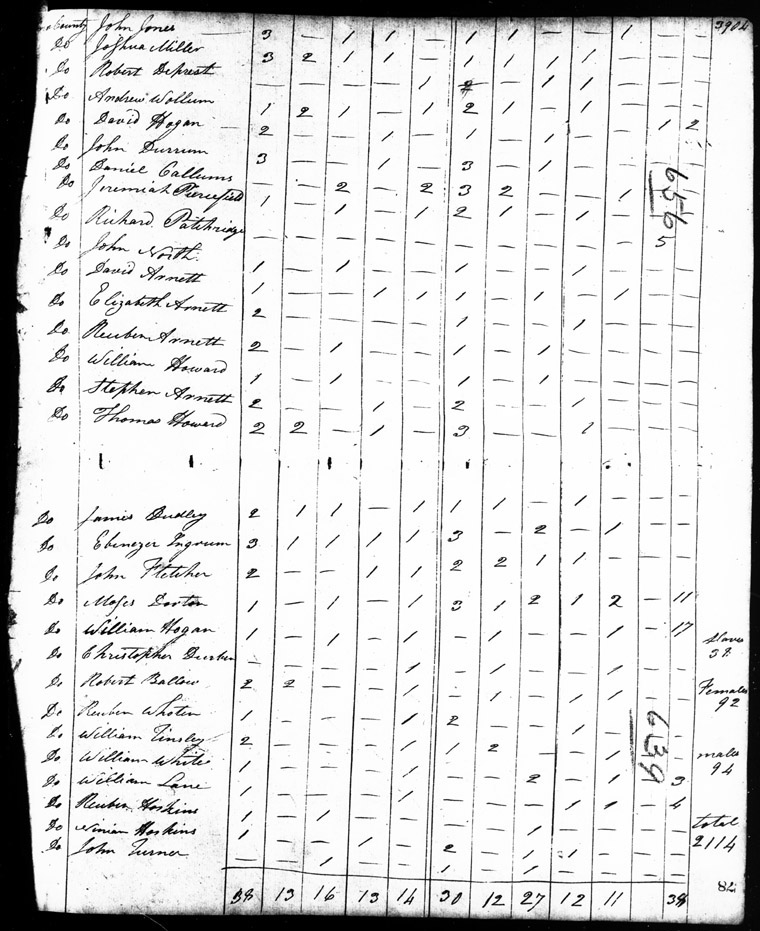 County John Jones 3 — 1 1 — 1 1 — — 1 — — 3904
Do Joshua Miller 3 2 1 1 — 1 1 1 1 — — —
Do Robert DePrest — — — — 1 2 — 1 1 — — —
Do Andrew Wollum 1 2 1 — 1 2 1 — 1 — — —
Do David Hogan 2 — — 1 — 1 — 1 — — 1 2
Do John Durrum 3 — — 1 — 3 — 1 — — — —
Do Daniel Callums — — 2 — 2 3 2 — — 1
Do Jeremiah Piercefield 1 — 1 — 1 2 1 — 1 — — —
Do Richard Patchridge — — — — — — — — — — 5 —
Do John North 1 — 1 — — 1 — — 1 — — —
Do David Arnett 1 — — 1 1 1 — 1 — 1 — —
Do Elizabeth Arnett 2 — — — — 1 — — 1 — — —
Do Reuben Arnett 2 — 1 — — 1 — 1 — — — —
Do William Howard 1 — 1 — — 1 — 1 — — — —
Do Stephen Arnett 2 — — 1 — 2 — — 1 — — —
Do Thomas Howard 2 2 — 1 — 3 — — 1 — — —
656
Do James Dudley 2 1 1 — 1 1 1 — 1 — — —
Do Ebenezer Ingrum 3 1 1 1 1 3 — 2 — 1 — —
Do John Fletcher 2 — — 1 1 2 2 1 1 — — —
Do Moses Dorton 1 — 1 — 1 3 1 2 1 2 — 11
Do William Hogan 1 — 1 — 1 — — — — 1 — 17
Do Christopher Durben — — — — 1 — — — — 1 — —
Do Robert Ballow 2 2 — — 1 — 1 — 1 1 — —
Do Reuben Whoten 1 — — — 1 2 — — 1 — — —
Do William Tinsley 2 — — — 1 1 2 — — 1 — —
Do William White 1 — — — 1 — — 2 — 1 — 3
Do William Lane 1 — — — 1 — — — 1 1 — 4
Do Reuben Hoskins 1 — 1 — — — — 1 — — — —
Do Ninian Hoskins 1 — — 1 — 2 — 1 1 — — —
Do John Turner — — 1 — — 1 — 1 — — — —
639
slaves
38
Females
92
males
94
total
2114
38 13 16 13 14 30 12 27 12 11 38
82